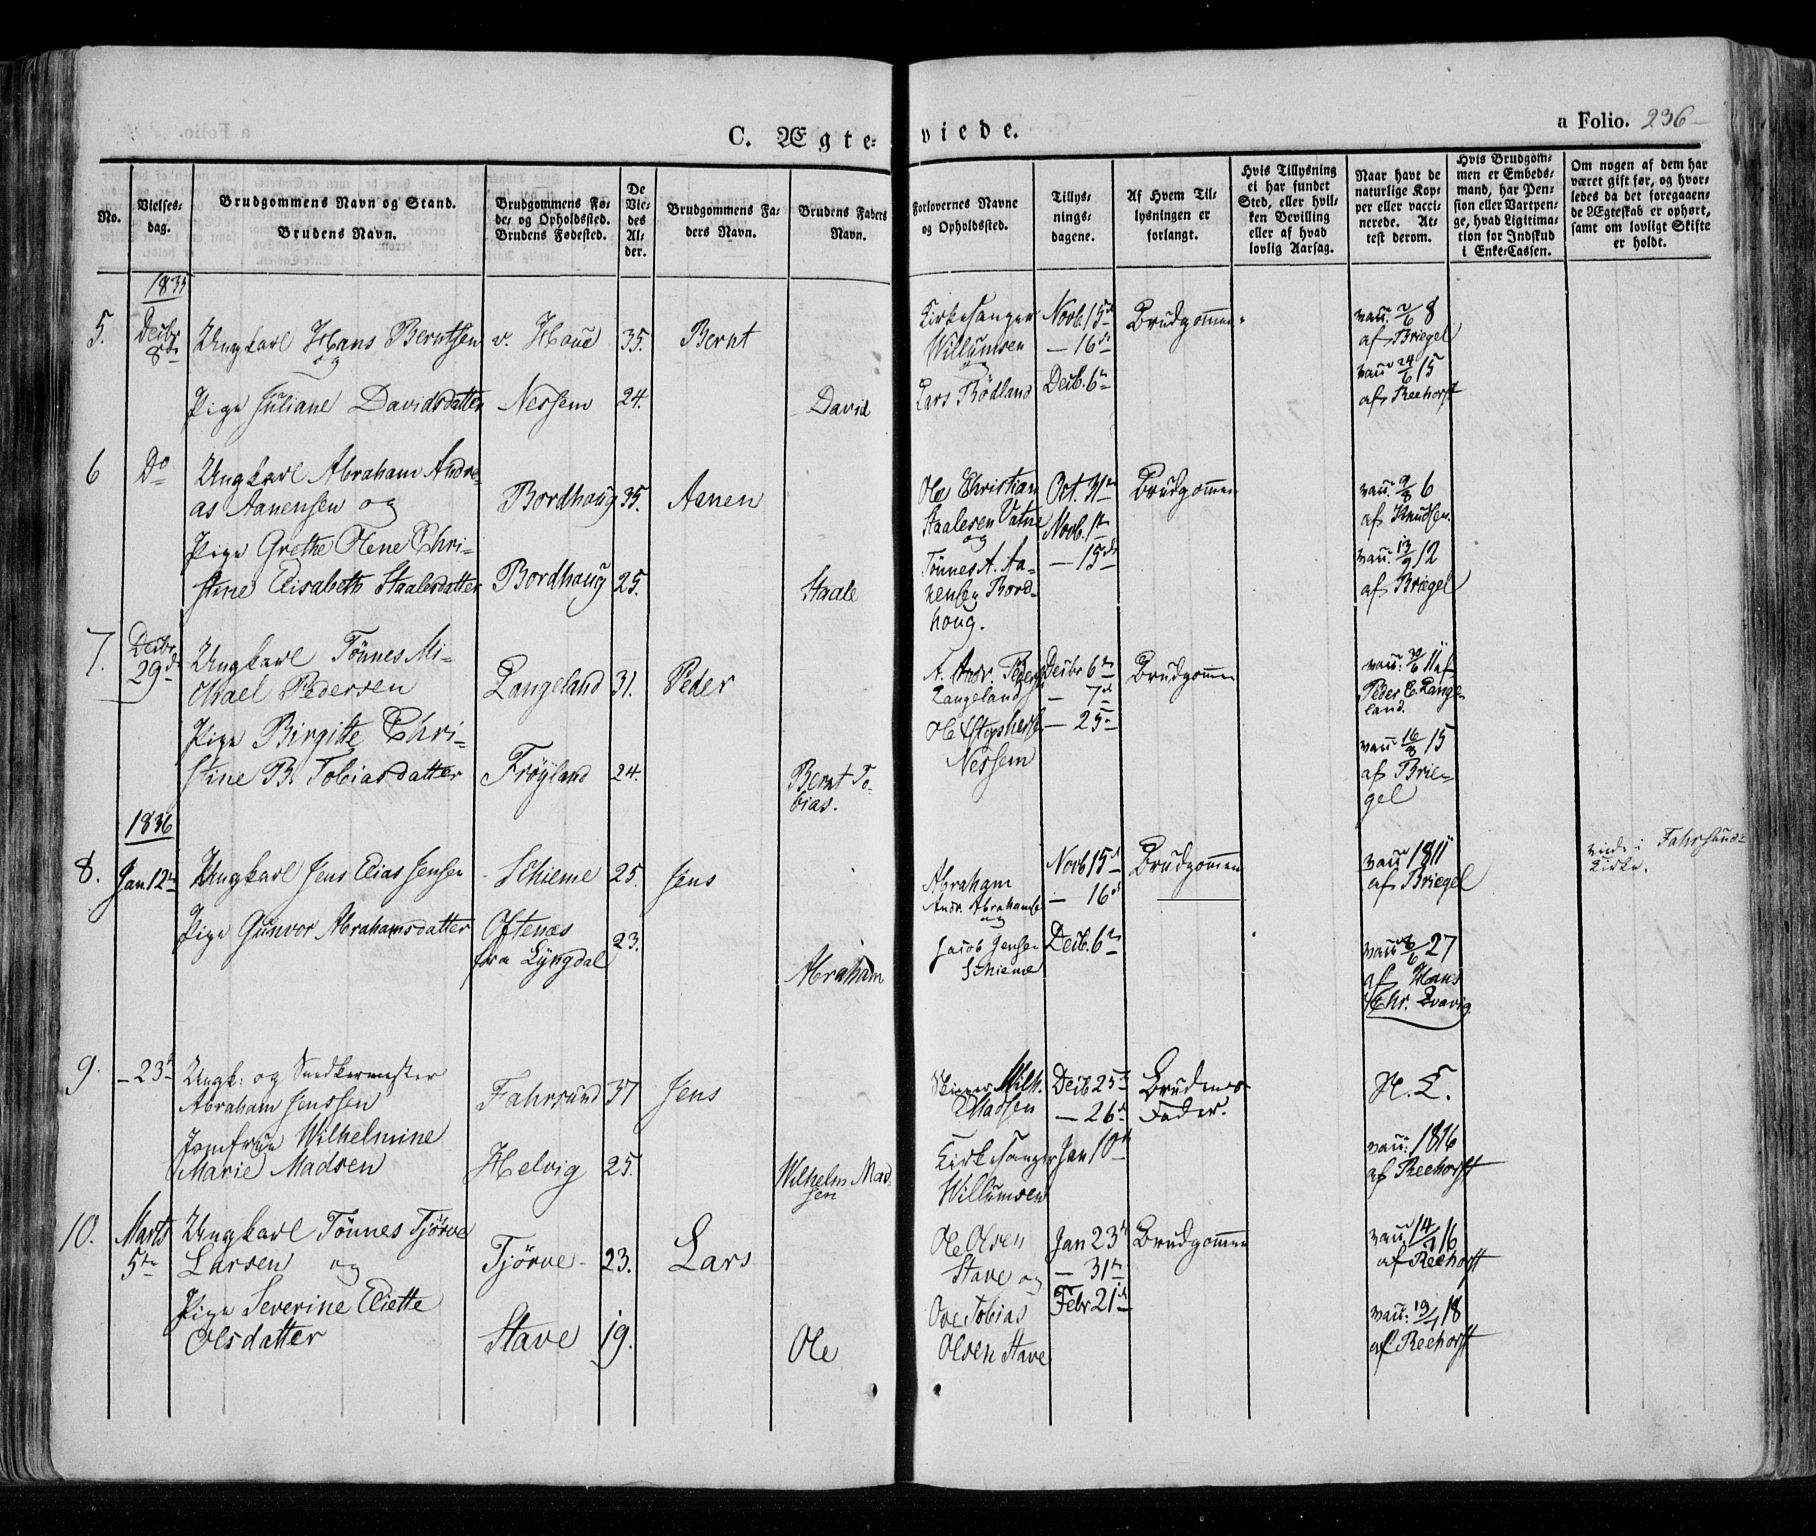 C. Ægte-viede.
a Folio. 236
No.
Vielses-dag.
Brudgommens Navn og Stand.
Brudens Navn.
Brudgommens Fø-de- og Opholdssted.
Brudens Fødested.
De Vie-des Al-der.
Brudgommens Fa-ders Navn.
Brudens Faders Navn.
Forlovernes Navne og Opholdssted.
Tillys-nings-dagene.
Af Hvem Til-lysningen er forlangt.
Hvis Tillysning ei har fundet Sted, eller hvil-ken Bevilling eller af hvad lovlig Aarsag.
Naar havt de naturlige Kop-per eller vacci-nerede. At-test derom.
Hvis Brudgom-men er Embeds-mand, har Pen-sion eller Vartpen-ge, hvad Ligitima-tion for Indskud i Enke-Cassen.
Om nogen af dem har været gift før, og hvor-ledes da det foregaaen-de Ægteskab er ophørt, samt om lovligt Skifte er holdt.
1835
5. Decbr 8de Ungkarl Hans Berntsen v. Haue 35. Bernt
og
Pige Juliane Davidsdatter Nessem 24. David
Kirkesanger Willumsen
og
Lars Rödland
Novb. 15d
— 16d
Decb. 6te
Brudgommen
vacc. 2/6 8
af Briegel
vacc 24/6 15
af Reehorst
6 Do Ungkarl Abraham Andre-
as Aanensen og Bordhoug 35. Aanen
Pige Grethe Olene Chri-
stine Elisabeth Staalesdatter Bordhoug 25. Staale
Ole Christian
Staalesen Vatne
og
Tönnes A. Aa-
nensen Bord-
houg.
Oct. 31te
Novb. 1te
— 15de
Brudgommen
vacc. 9/8 6
af Knudsen.
vacc: 13/9 12
af Briegel
7. Decbr 29d Ungkarl Tönnes Mi-
chael Pedersen Langeland 31. Peder
Pige Birgitte Chri-
stine B. Tobiasdatter Fröyland 24. Bernt To-
bias.
A. Andr. Peders
Langeland
Ole
Nessem
Decbr 6te
— 7d
— 25de
Brudgommen
vacc: 11 af
Peder C. Lange-
land.
vacc 16/8 15
af Brie-
gel
1836
8. Jan 12te Ungkarl Jens Elias Jensen Schieme 25. Jens
Pige Gunvor Abrahamsdatter Oftenæs
fra Lyngdal 23. Abraham
Abraham
Andr. Abrahams
og
Jacob Jensen
Schieme
Novb 15d
— 16d
Decb. 6te
Brudgommen
vacc 1811
af Briegel
vacc 8/6 27
af Hans
Chr. Qvavig
viede i Fahrsunds
Kirke.
9. — 23d Ungk: og Snedkermester
Abraham Jenssen Fahrsund 37 Jens
Jomfrue Wilhelmine
Marie Madsen Helvig 25. Wilhelm Mad-
sen
Skipper Wilh.
Madsen
Kirkesanger
Willumsen
Decb 25d
— 26d
Jan 10de
Brudens
Fader.
N. E.
vacc: 1816
af Reehorst
10. Marts 5te Ungkarl Tönnes Tjörve
Larsen og Tjörve 23. Lars
Pige Severine Eliette
Olsdatter Stave 19. Ole
Ole Olsen
Stave og
Ove Tobias
Olsen Stave
Jan 23d
— 31te
Febr 21d
Brudgommen
vacc 14/1 16
af Reehorst
vacc: 19/1 18
af Reehorst